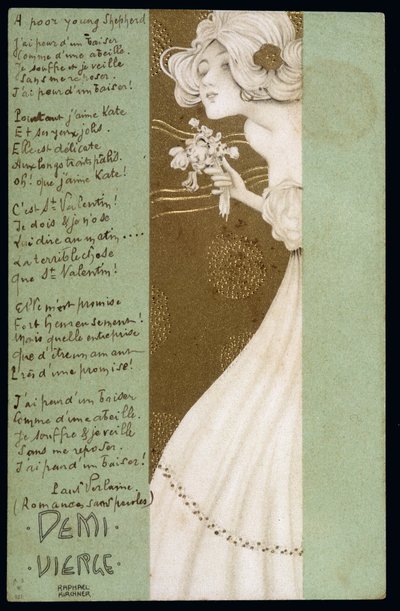 A poor young Shepherd
J'ai peur d'un baiser
Comme d'une abeille.
Je souffre et je veille
Sans me reposer.
J'ai peur d'un baiser!
Pourtant j'aime Kate
Et ses yeux jolis.
Elle est délicate
Aux longs traits pâlis.
Oh! que j'aime Kate!
C'est St Valentin!
Je dois & je n'ose
Lui dire au matin....
La terrible chose
Que St Valentin!
Elle m'est promise
Fort heureusement!
Mais quelle entreprise
Que d'être un amant
Près d'une promise!
J'ai peur d'un baiser
Comme d'une abeille.
Je souffre & je veille
Sans me reposer.
J'ai peur d'un baiser!
Paul Verlaine.
(Romances sans paroles)
DEMI
VIERGE
RAPHAEL
KIRCHNER